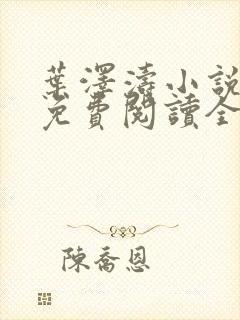 葉澤濤小說
免費閱讀全
陳喬恩